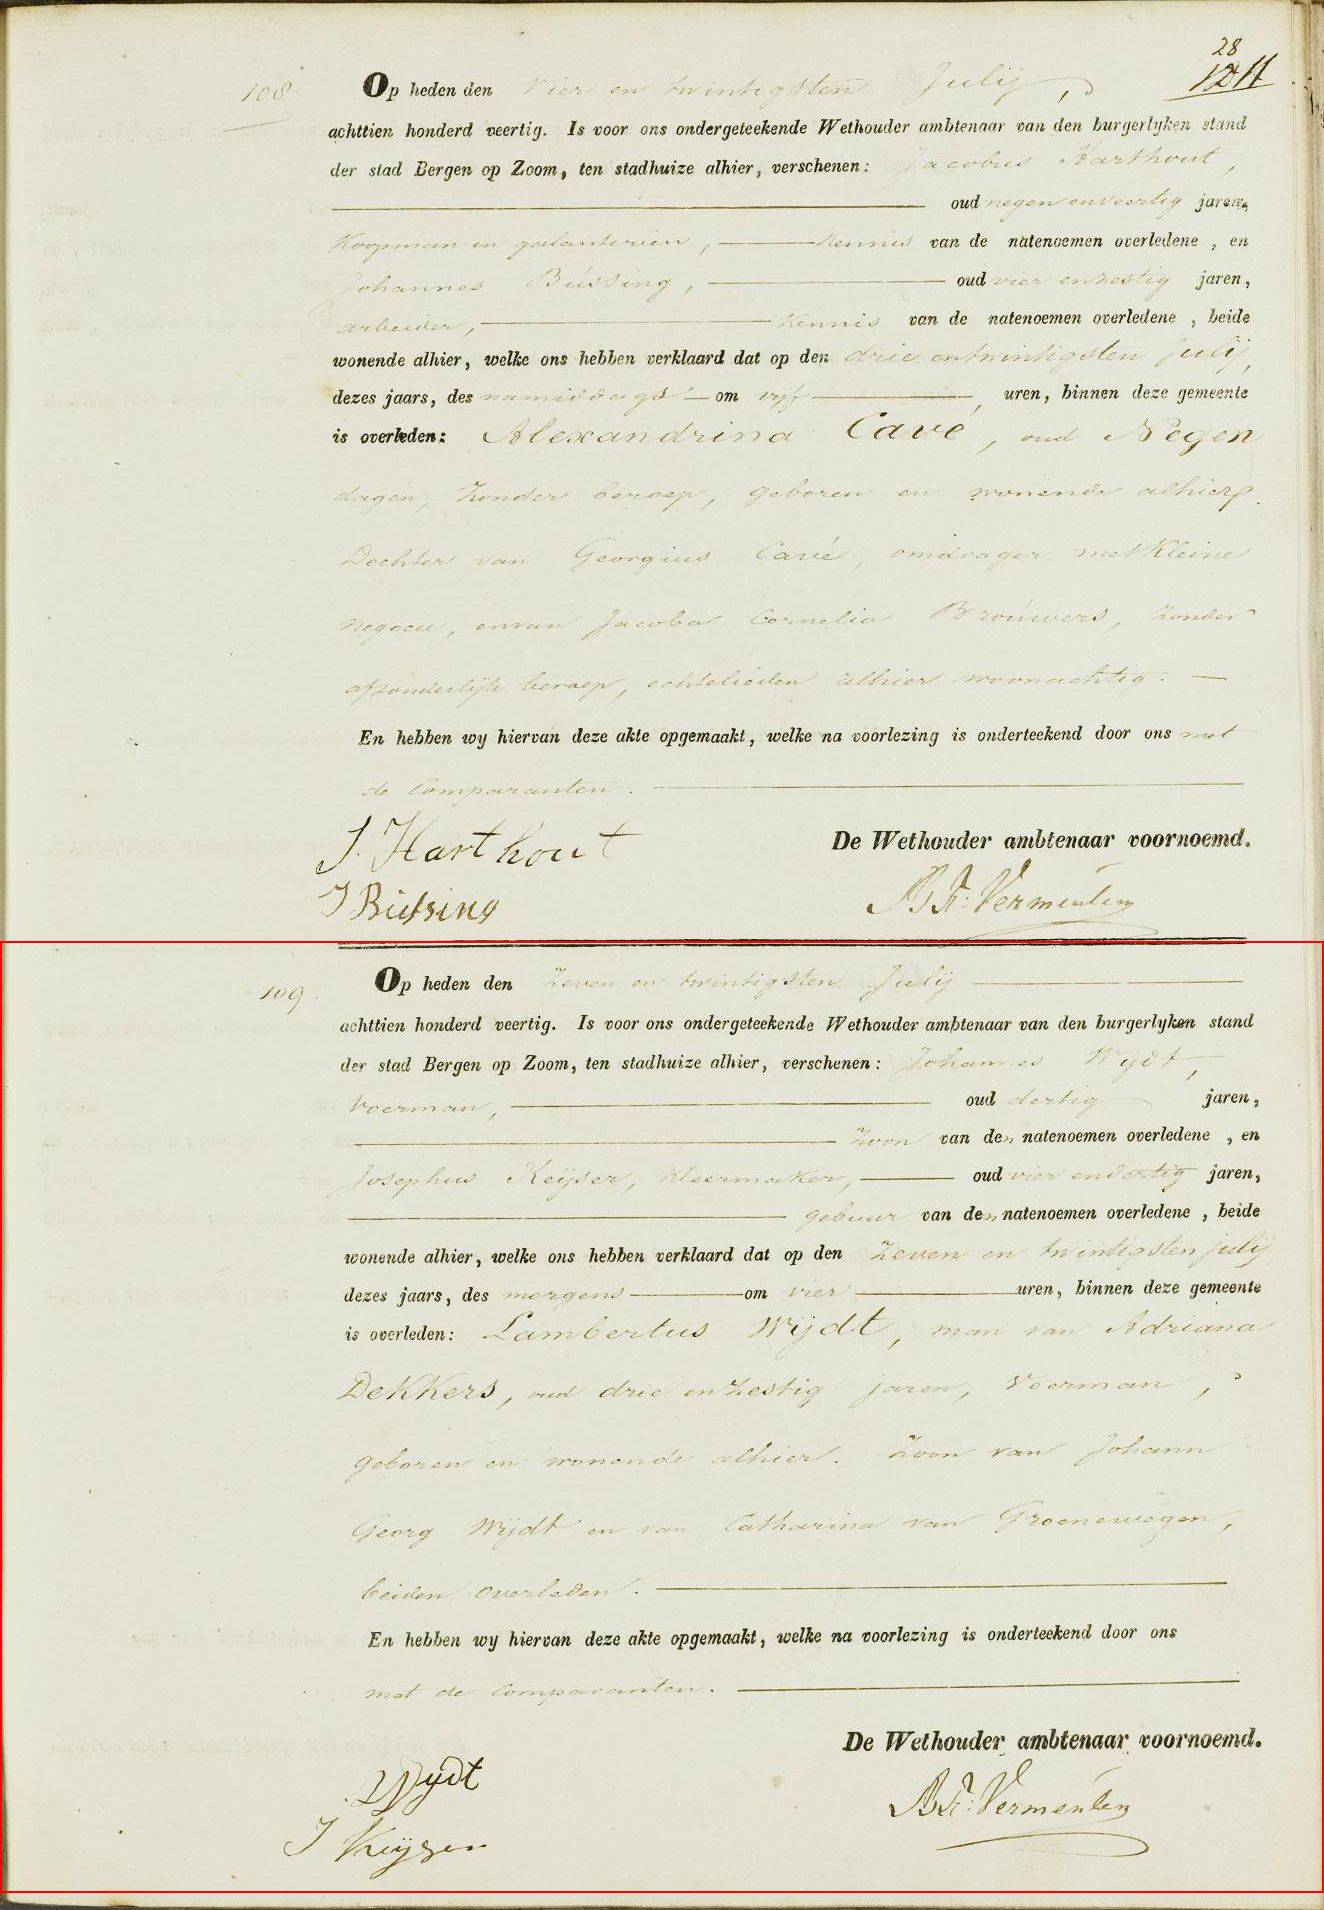 28
108. Op heden den vier en twintigsten Julij,
achttien honderd veertig. Is voor ons ondergeteekende Wethouder ambtenaar van den burgerlyken stand
der stad Bergen op Zoom, ten stadhuize alhier, verschenen: Jacobus Harthout,
oud negen en veertig jaren,
Koopman in galanterien, kennis van de natenoemen overledene, en
Johannes Bússing, oud vier en zestig jaren,
arbeider, kennis van de natenoemen overledene, beide
wonende alhier, welke ons hebben verklaard dat op den drie en twintigsten Julij,
dezes jaars, des namiddags om vijf uren, binnen deze gemeente
is overleden: Alexandrina Cavé, oud Negen
dagen, zonder beroep, geboren en wonende alhier.
Dochter van Georgius Cavé, omdrager met Kleine
negocie, en van Jacoba Cornelia Broúwers, zonder
afzonderlijk beroep, echtelieden alhier woonachtig.
En hebben wy hiervan deze akte opgemaakt, welke na voorlezing is onderteekend door ons met
de Comparanten.
De Wethouder ambtenaar voornoemd.
J. Harthout
J Büssing
Vermeulen
109. Op heden den Zeven en twintigsten Julij
achttien honderd veertig. Is voor ons ondergeteekende Wethouder ambtenaar van den burgerlyken stand
der stad Bergen op Zoom, ten stadhuize alhier, verschenen: Johannes Wijdt,
Voerman, oud dertig jaren,
Zoon van den natenoemen overledene, en
Josephus Keijser, kleermaker, oud vier en dertig jaren,
gebuur van den natenoemen overledene, beide
wonende alhier, welke ons hebben verklaard dat op den Zeven en twintigsten julij
dezes jaars, des morgens om vier uren, binnen deze gemeente
is overleden: Lambertus Wijdt, man van Adriana
Dekkers, oud drie en zestig jaren, Voerman,
geboren en wonende alhier. Zoon van Johann
Georg Wijdt en van Catharina van Groenewegen,
beiden overleden.
En hebben wy hiervan deze akte opgemaakt, welke na voorlezing is onderteekend door ons
met de Comparanten.
De Wethouder ambtenaar voornoemd.
Wydt
J Keyzer
Vermeulen